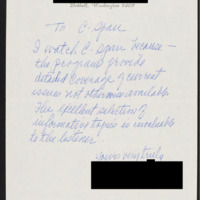 To C-Span
I watch C-Span because –
the programs provide
detailed coverage of current
issues not otherwise available.
The excellent selection of
informative topics is invaluable
to the listener
Yours very truly